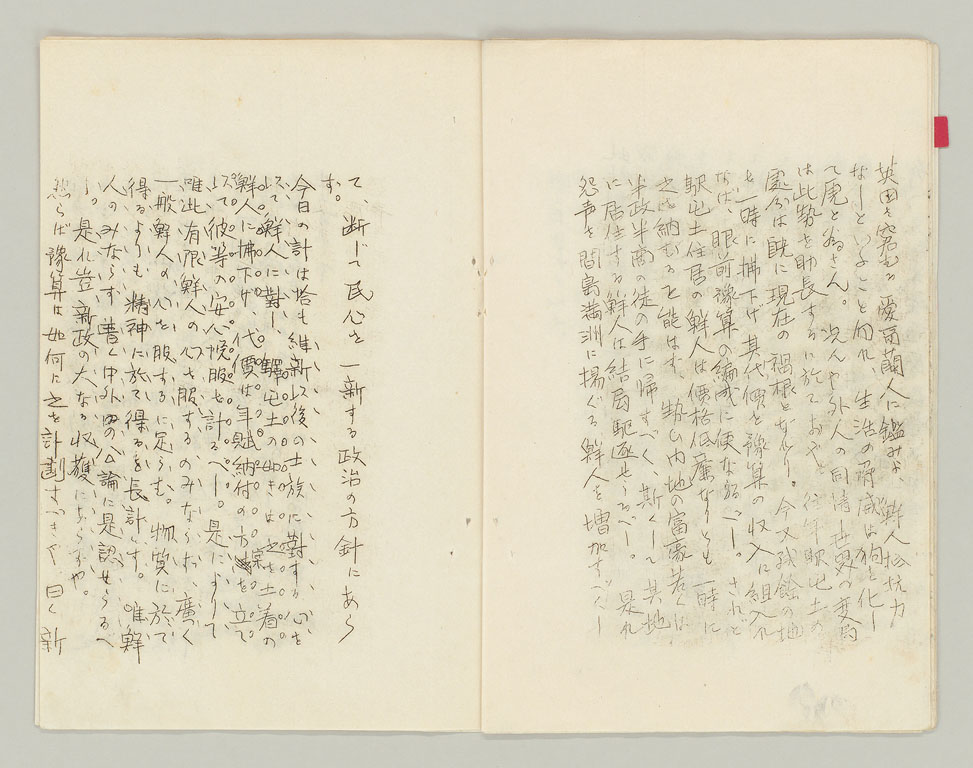 英国を窘むる愛爾蘭人に鑑みよ、鮮人抵抗力
なしといふこと勿れ 生活の脅威は狗を化し
て虎と為さん。次んや外人の同情し世界の変局
は此勢を助長するに於ておや。往年駅屯土の
處分は既に現在の禍根となれり。今又残餘の地
を一時に拂下げ其代価を豫算の収入に組入れ
なば、眼前豫算の編成に便なるべし。されど
駅屯土住居の鮮人は價格低廉なりとも一時に
之を納むると能はず、勢ひ内地の富豪若くは
半政半商の徒の手に帰すべく、斯くして其地
に居住する鮮人は結局駆逐せらるべし。是れ
怨声を間島満洲に揚ぐる鮮人を増加すべし
て、断じて民心を一新する政治の方針にあら
ず。
今日の計は恰も維新以後の士族に對する心を
以て、鮮人に對し、驛屯土の如きは之を土着の
鮮人に拂下げ、代價は年賦納付の方案を立て
以て彼等の安心悦服を計るべし。是によりて
唯此有限鮮人の心を服するのみならず、廣く
一般鮮人の心を服するに足らむ。物質に於て
得るよりも、精神に於て得るを長計とす。唯鮮
人のみならず、普く中外の公論に是認せらるべ
し。是れ豈新政の大なる収穫にあらずや。
然らば豫算は如何に之を計劃すべきや曰く新